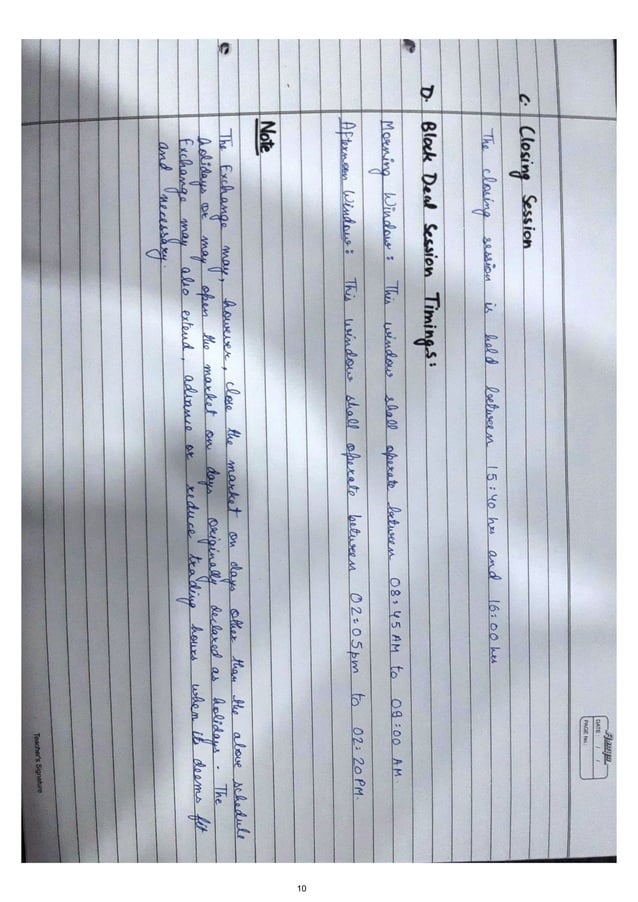 DATE / /
PAGE No.
C. Closing Session
The closing session is held between 15:40 hrs and 16:00 hrs
D. Block Deal Session Timings:
Morning Window: This window shall operate between 08:45 AM to 09:00 AM.
Afternoon Window: This window shall operate between 02:05pm to 02:20PM.
Note
The Exchange may, however, close the market on days other than the above schedule
holidays or may open the market on days originally declared as holidays. The
Exchange may also extend, advance or reduce trading hours when it deems fit
and necessary.
Teacher's Signature
10